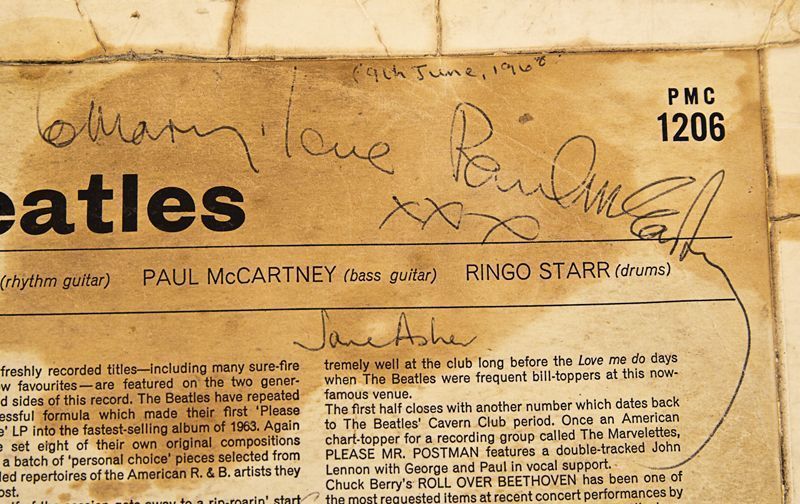 (9th June, 1968
to Mary, love Paul McCartney
xxx
PMC
1206
eatles
(rhythm guitar) PAUL McCARTNEY (bass guitar) RINGO STARR (drums)
Jane Asher
freshly recorded titles—including many sure-fire
w favourites—are featured on the two gener-
d sides of this record. The Beatles have repeated
essful formula which made their first 'Please
e' LP into the fastest-selling album of 1963. Again
set eight of their own original compositions
a batch of 'personal choice' pieces selected from
led repertoires of the American R. & B. artists they
ost.
tremely well at the club long before the Love me do days
when The Beatles were frequent bill-toppers at this now-
famous venue.
The first half closes with another number which dates back
to The Beatles' Cavern Club period. Once an American
chart-topper for a recording group called The Marvelettes,
PLEASE MR. POSTMAN features a double-tracked John
Lennon with George and Paul in vocal support.
Chuck Berry's ROLL OVER BEETHOVEN has been one of
the most requested items at recent concert performances by